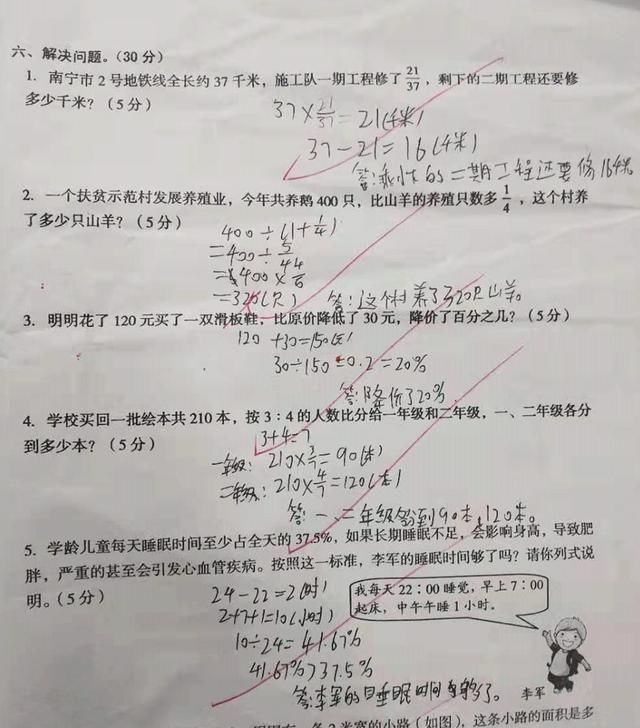 六、解决问题。(30分)
1. 南宁市2号地铁线全长约37千米,施工队一期工程修了21/37,剩下的二期工程还要修
多少千米?(5分)
37×21/37=21(千米)
37-21=16(千米)
答:剩下的二期工程还要修16千米
2. 一个扶贫示范村发展养殖业,今年共养鹅400只,比山羊的养殖只数多1/4,这个村养
了多少只山羊?(5分)
400÷(1+1/4)
=400÷5/4
=320(只)
答:这个村养了320只山羊。
3. 明明花了120元买了一双滑板鞋,比原价降低了30元,降价了百分之几?(5分)
120+30=150(元)
30÷150=0.2=20%
答:降价了20%
4. 学校买回一批绘本共210本,按3:4的人数比分给一年级和二年级,一、二年级各分
到多少本?(5分)
3+4=7
一年级:210×3/7=90(本)
二年级:210×4/7=120(本)
答:一、二年级分到90本,120本。
5. 学龄儿童每天睡眠时间至少占全天的37.5%,如果长期睡眠不足,会影响身高,导致肥
胖,严重的甚至会引发心血管疾病。按照这一标准,李军的睡眠时间够了吗?请你列式说
明。(5分)
我每天22:00睡觉,早上7:00
起床,中午午睡1小时。
24-22=2(时)
2+7+1=10(小时)
10÷24=41.67%
41.67%>37.5%
答:李军的睡眠时间够了。
李军
条2米宽的小路(如图),这条小路的面积是多